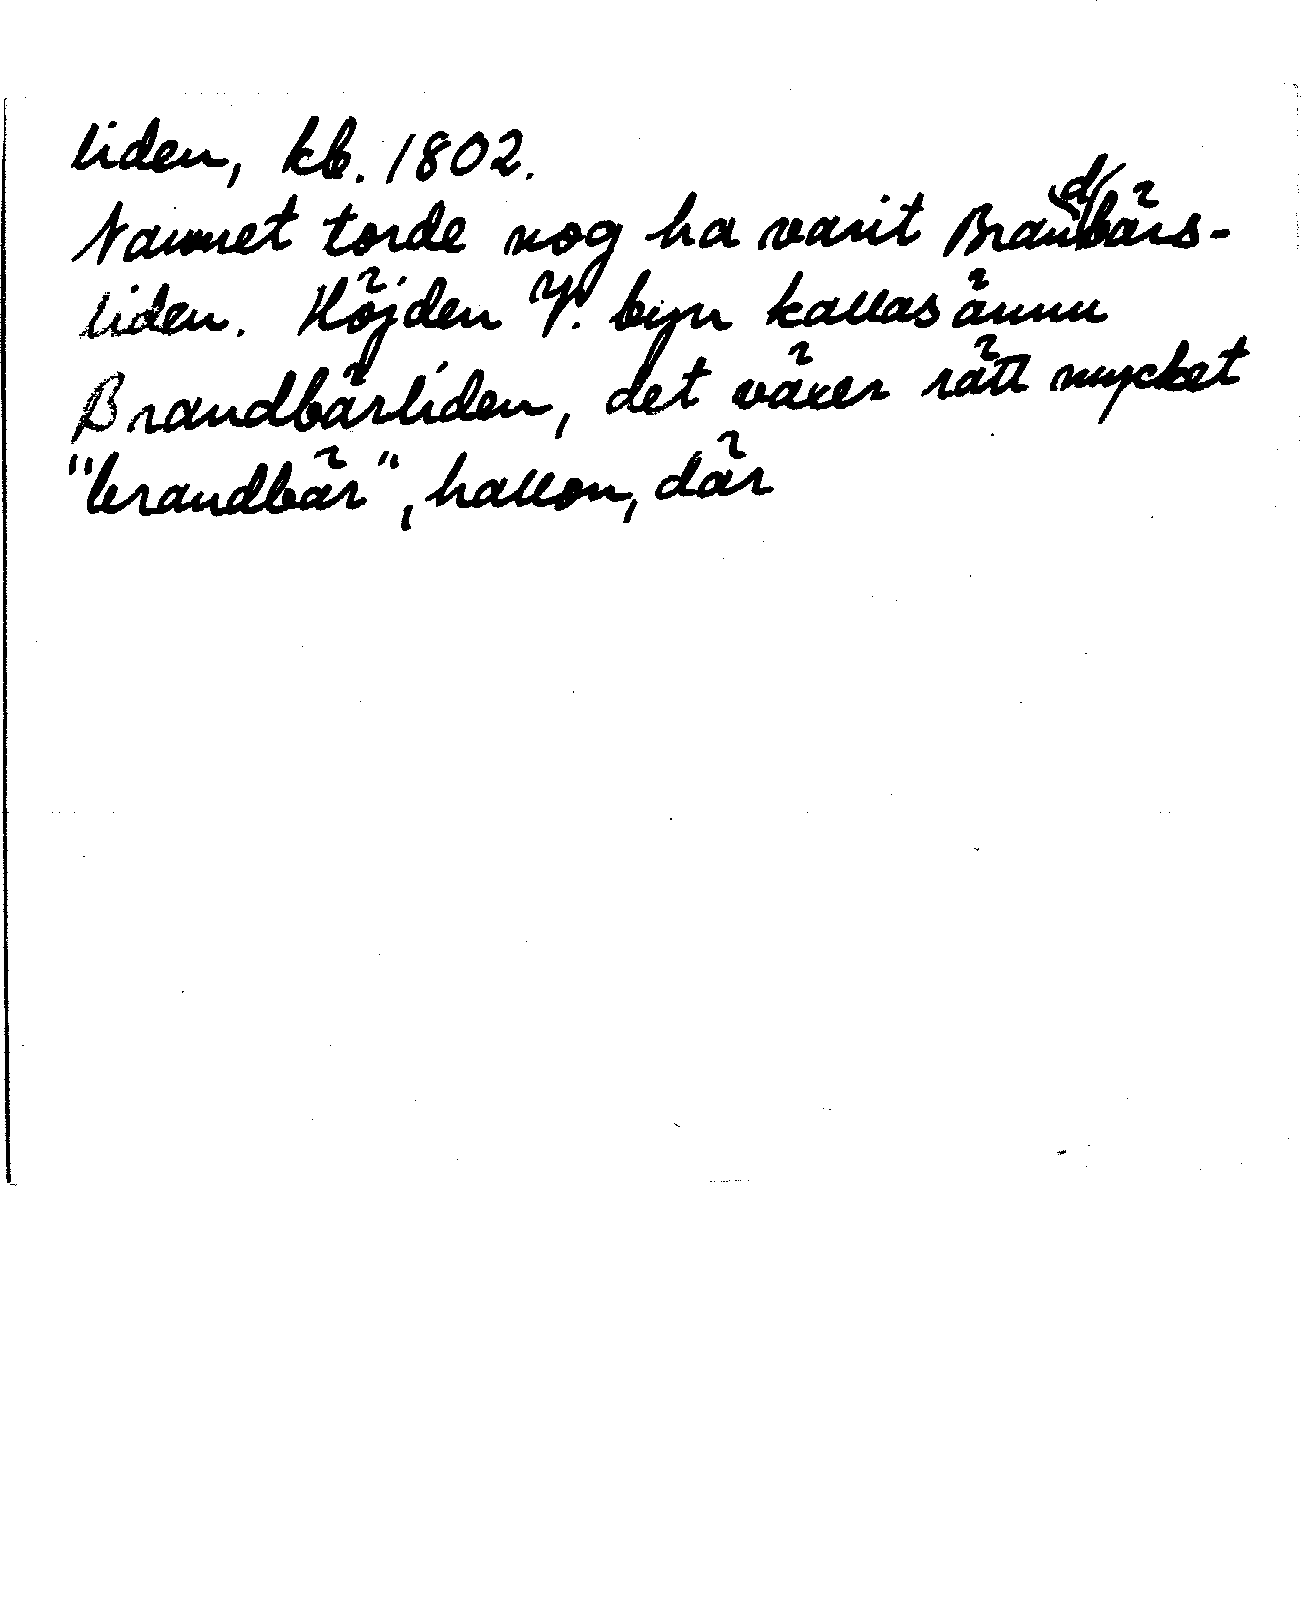 liden, kb. 1802.
Namnet torde nog ha varit Brandbärs-
liden. Höjden V. byn kallas ännu
Brandbärliden, det växer rätt mycket
"brandbär", hallon, där